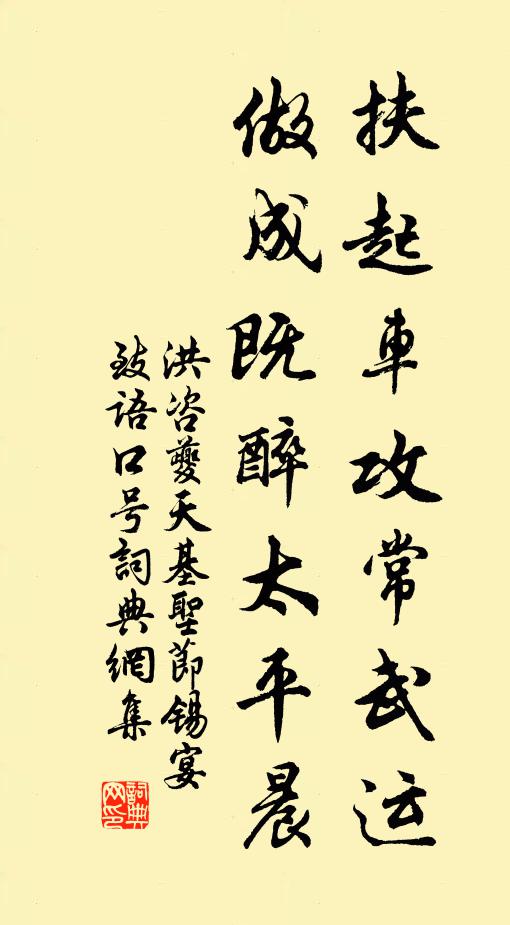 扶起車攻常武运
做成既醉太平晨
洪咨夔天基聖節錫宴
致语口号詞典網集
詞典网印